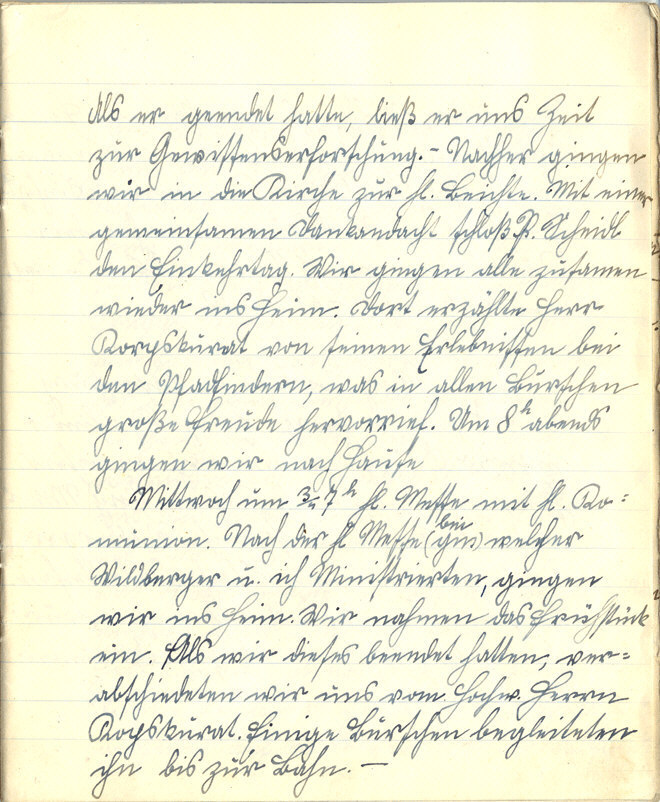 Als er geendet hatte, ließ er uns Zeit
zur Gewissenserforschung. - Nachher gingen
wir in die Kirche zur hl. Beichte. Mit einer
gemeinsamen Dankandacht schloß P. Scheidl
den Einkehrtag. Wir gingen alle zusamen
wieder ins Heim. Dort erzählte Herr
Korpskurat von seinen Erlebnissen bei
den Pfadfindern, was in allen Burschen
große Freude hervorrief. Um 8h abends
gingen wir nach Hause
Mittwoch um 3/4 7h hl. Messe mit hl. Ko=
munion. Nach der hl Messe (zu) bei welcher
Wildberger u. ich Ministrierten, gingen
wir ins Heim. Wir nahmen das Frühstück
ein. Als wir dieses beendet hatten, ver=
abschiedeten wir uns vom Hochw. Herrn
Kopskurat. Einige Burschen begleiteten
ihn bis zur Bahn. —